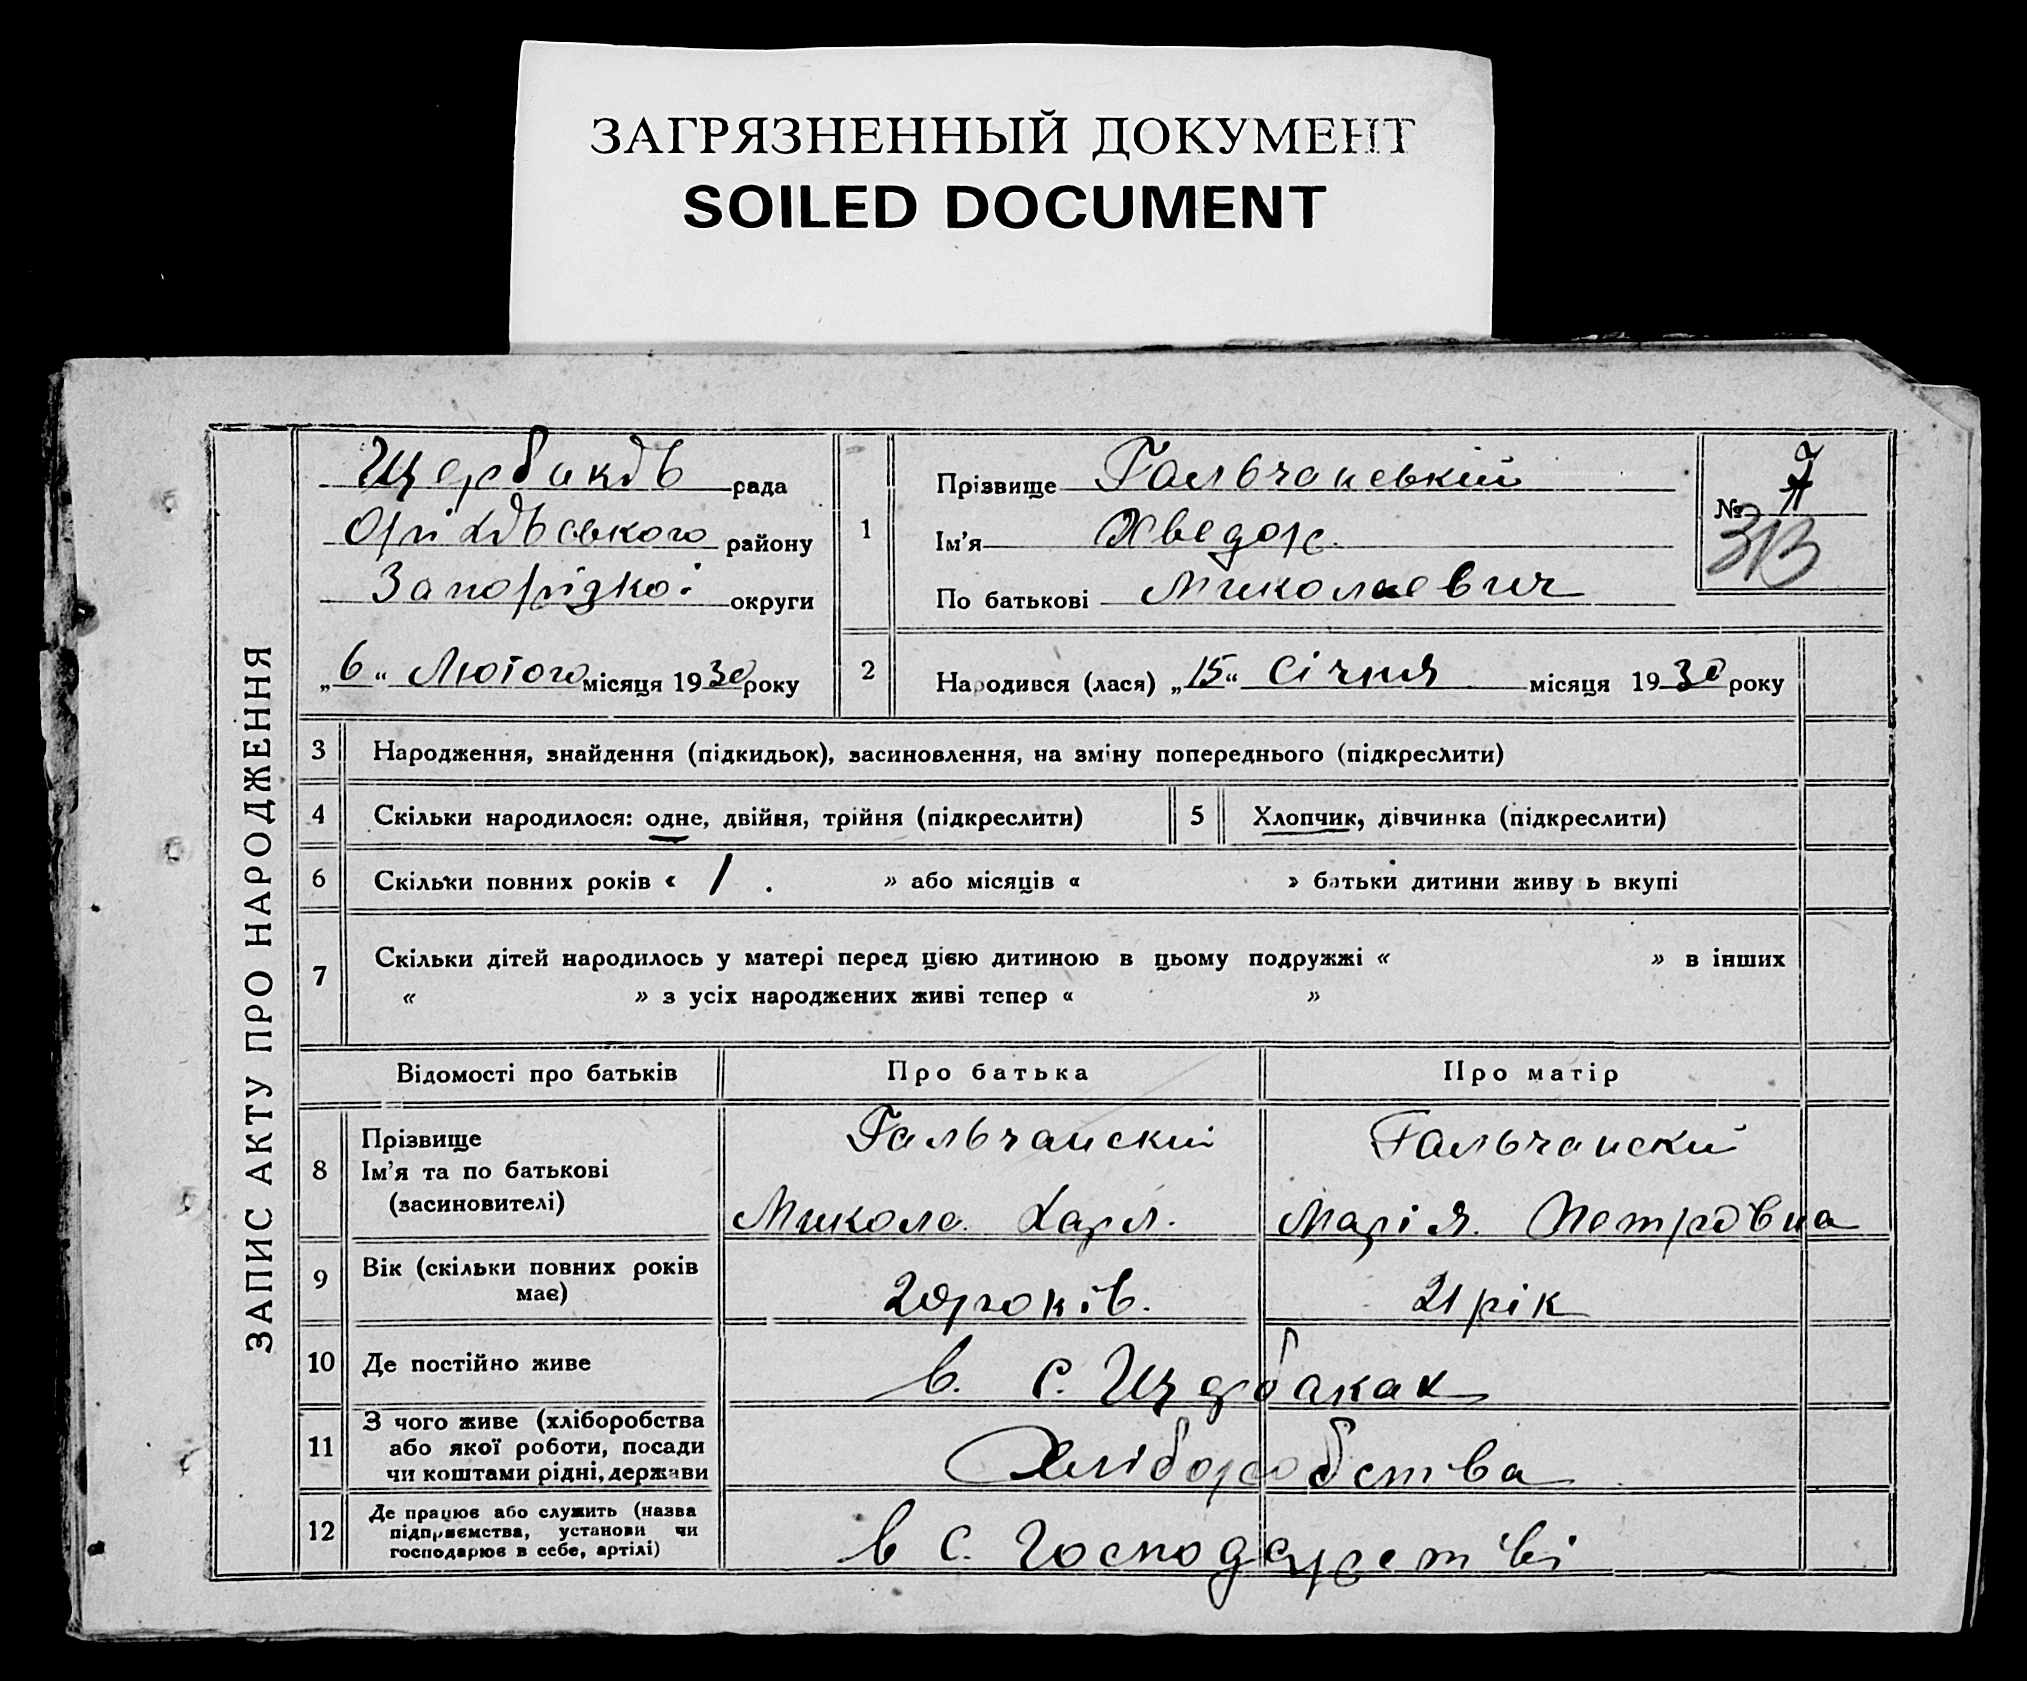 ЗАГРЯЗНЕННЫЙ ДОКУМЕНТ
SOILED DOCUMENT
ЗАПИС АКТУ ПРО НАРОДЖЕННЯ
рада
району
Запорізкоі округи
„6“ Лютого місяця 1930 року
1
Прізвище Гальчанській
Ім’я Хведор.
По батькові Миколаевич
№ 7
2
Народився (лася) „15“ Січня місяця 1930 року
3 Народження, знайдення (підкидьок), засиновлення, на зміну попереднього (підкреслити)
4 Скільки народилося: одне, двійня, трійня (підкреслити)
5 Хлопчик, дівчинка (підкреслити)
6 Скільки повних років « 1 . » або місяців « » батьки дитини живу ь вкупі
7 Скільки дітей народилось у матері перед цією дитиною в цьому подружжі « » в інших
« » з усіх народжених живі тепер « »
Відомості про батьків Про батька Про матір
8 Прізвище
Ім’я та по батькові
(засиновителі)
Гальчанский
Микола Харл.
Гальчанский
Марія. Петровна
9 Вік (скільки повних років
має)
20 років. 21 рік
10 Де постійно живе в. с. Щербаках
11 З чого живе (хліборобства
або якої роботи, посади
чи коштами рідні, держави
Хліборобства
12 Де працює або служить (назва
підприємства, установи чи
господарює в себе, артілі)
в с. Господарстві